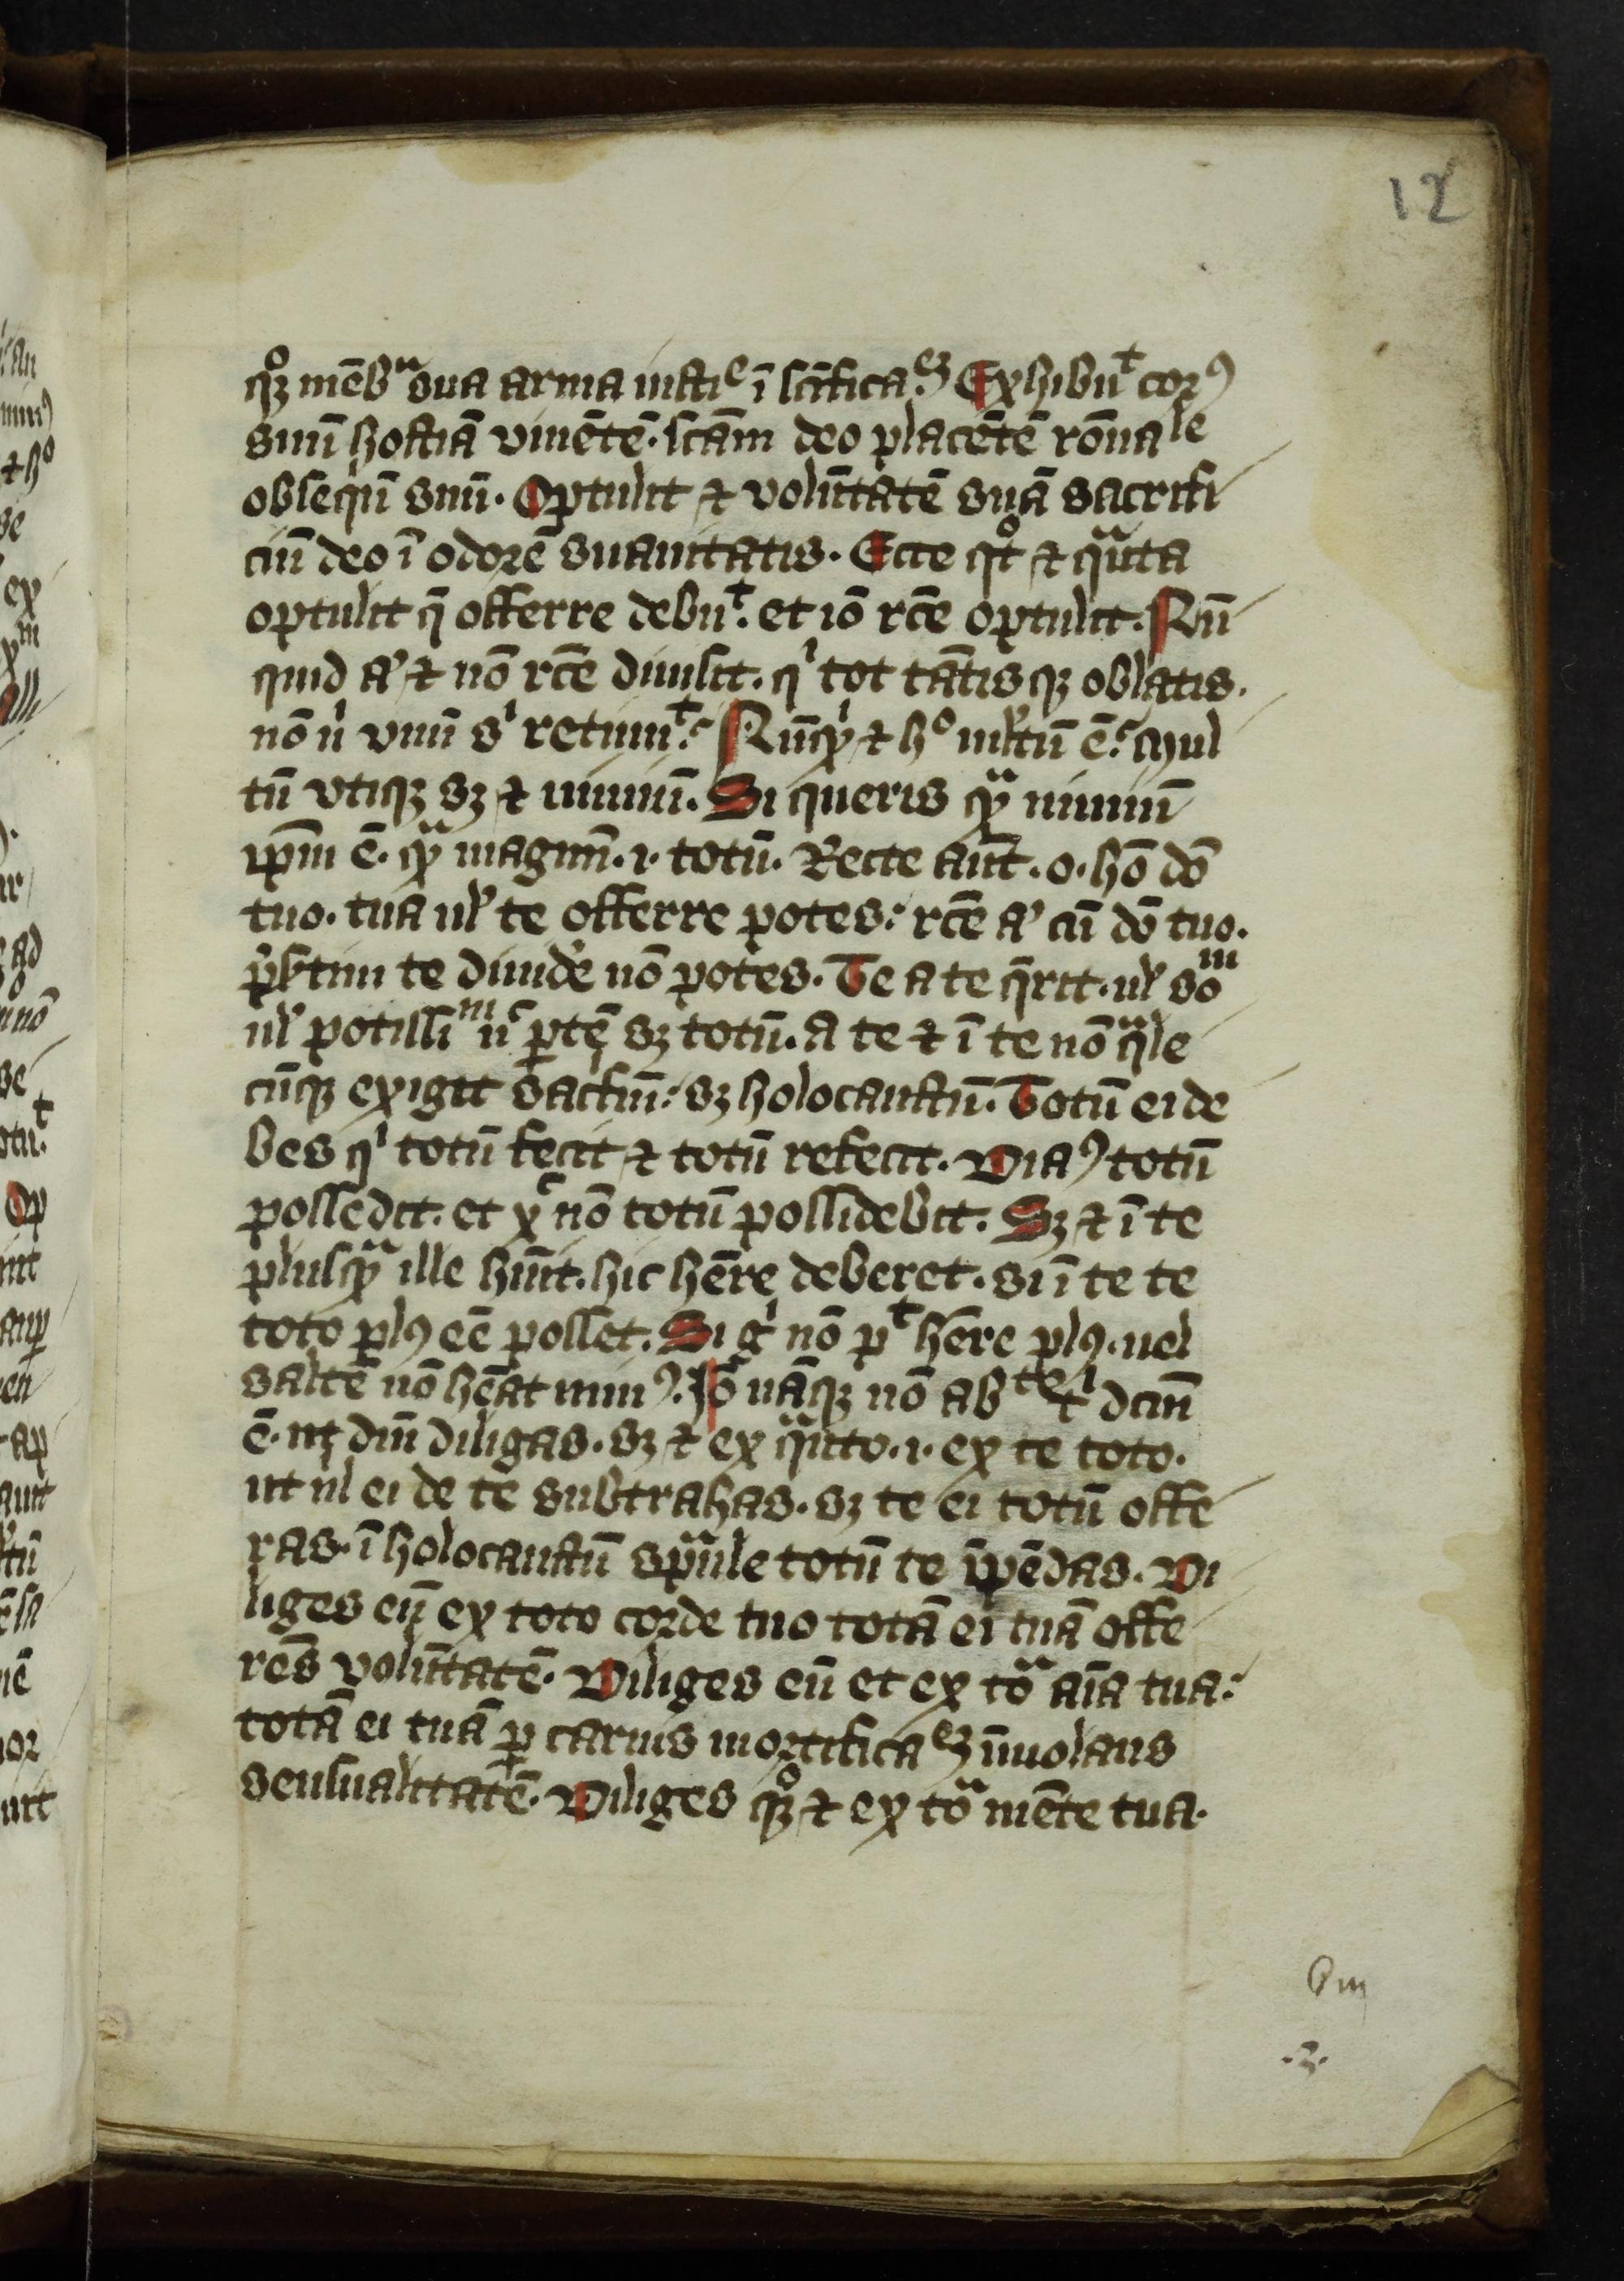 12
qͦꝫ mēbᵃ sua arma iusticᵉ ī sc̄ificaᵉꝫ Exhibuᵗ corꝰ
suū hostiā viuētē. sc̄am deo placētē rōnale
obseqͥū suū. Optulit ⁊ volūtatē suā sacrifi
ciū deo ī odorē suauitatis. Ecce qͦt ⁊ qͣnta
optulit q̄ offerre debuᵗ. et iō rc̄e optulit. Nū
quid aʼ ⁊ nō rc̄e diuisit. qͥ tot tātis qꝫ oblatis.
nō nͥ vnū sͥ retinuᵗ. Nūqͥd ⁊ hͦ mltū ē. Mul
tū vtiqꝫ sꝫ ⁊ nimiū. Si queris qͣꝫ nimiū
ip̄m ē. qͣꝫ magnū. i. totū. Recte aut̄. o. hō dō
tuo. tua ul te offerre potes: rc̄e aʼ cū dō tuo.
ꝑbtim te diuidͤe nō potes. Te a te q̄rit. ul soᵐ
ul potissiᵐ nᶜ ꝑtē sꝫ totū. a te ⁊ ī te nō qͣle
cūqꝫ exigit sacfm̄: sꝫ holocaustū. Totū ei de
bes qͥ totū fecit ⁊ totū refecit. Diaꝰ totū
possedit. et xᶜ nō totū possidebit. Sꝫ ⁊ ī te
plusqͣꝫ ille hūit. hic hēre deberet. si ī te te
toto plꝰ eē posset. Si gͥ nō pᵗ hēre plꝰ. uel
saltē nō hēat minꝰ. Iō nāqꝫ nō abᵗᵉ tͥ dcm̄
ē. ut dm̄ diligas. sꝫ ⁊ ex qͣnto. i. ex te toto.
ut nl ei de te subtrahas. sꝫ te ei totū offe
ras. ī holocaustū spͣuale totū te īpēdas. Di
liges eū ex toto corde tuo totā ei tuā offe
rēs volūtatē. Diliges eū et ex toͣ aīa tua:
totā ei tuā ꝑ carnis mortificaᵉꝫ īmolans
sensualitatē. Diliges qͦꝫ ⁊ ex toͣ mēte tua.
.3.